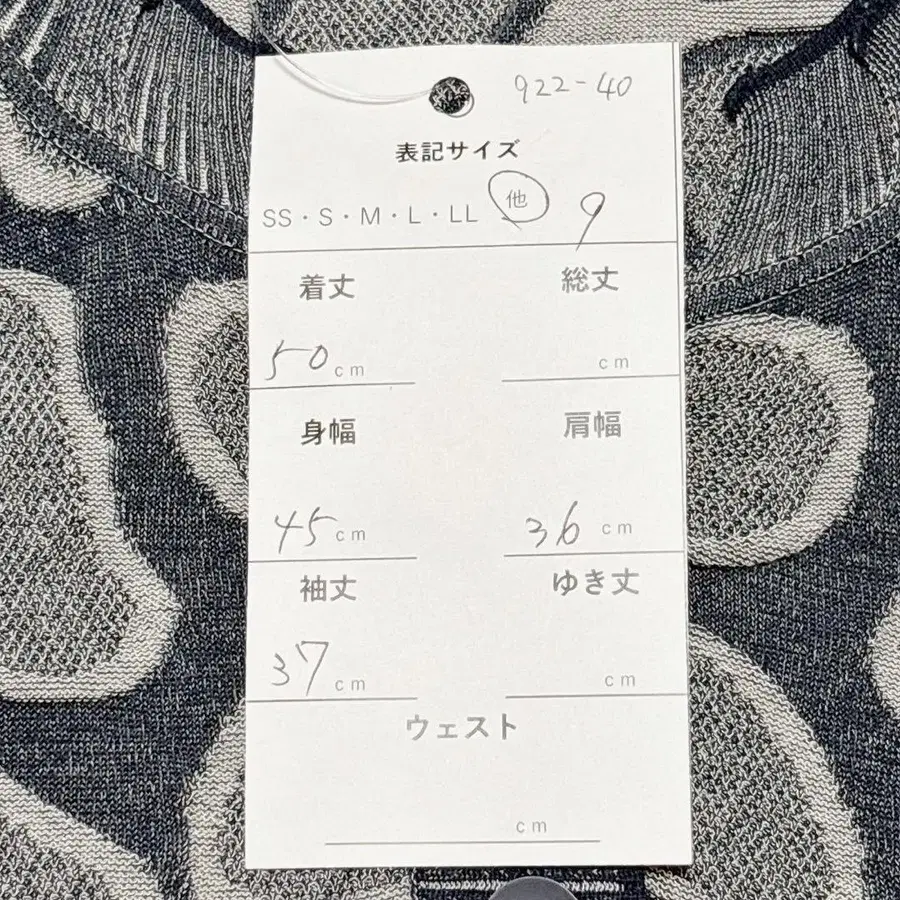 922-40
表記サイズ
SS・S・M・L・LL 他 9
着丈 総丈
50 cm cm
身幅 肩幅
45 cm 36 cm
袖丈 ゆき丈
37 cm cm
ウェスト
cm